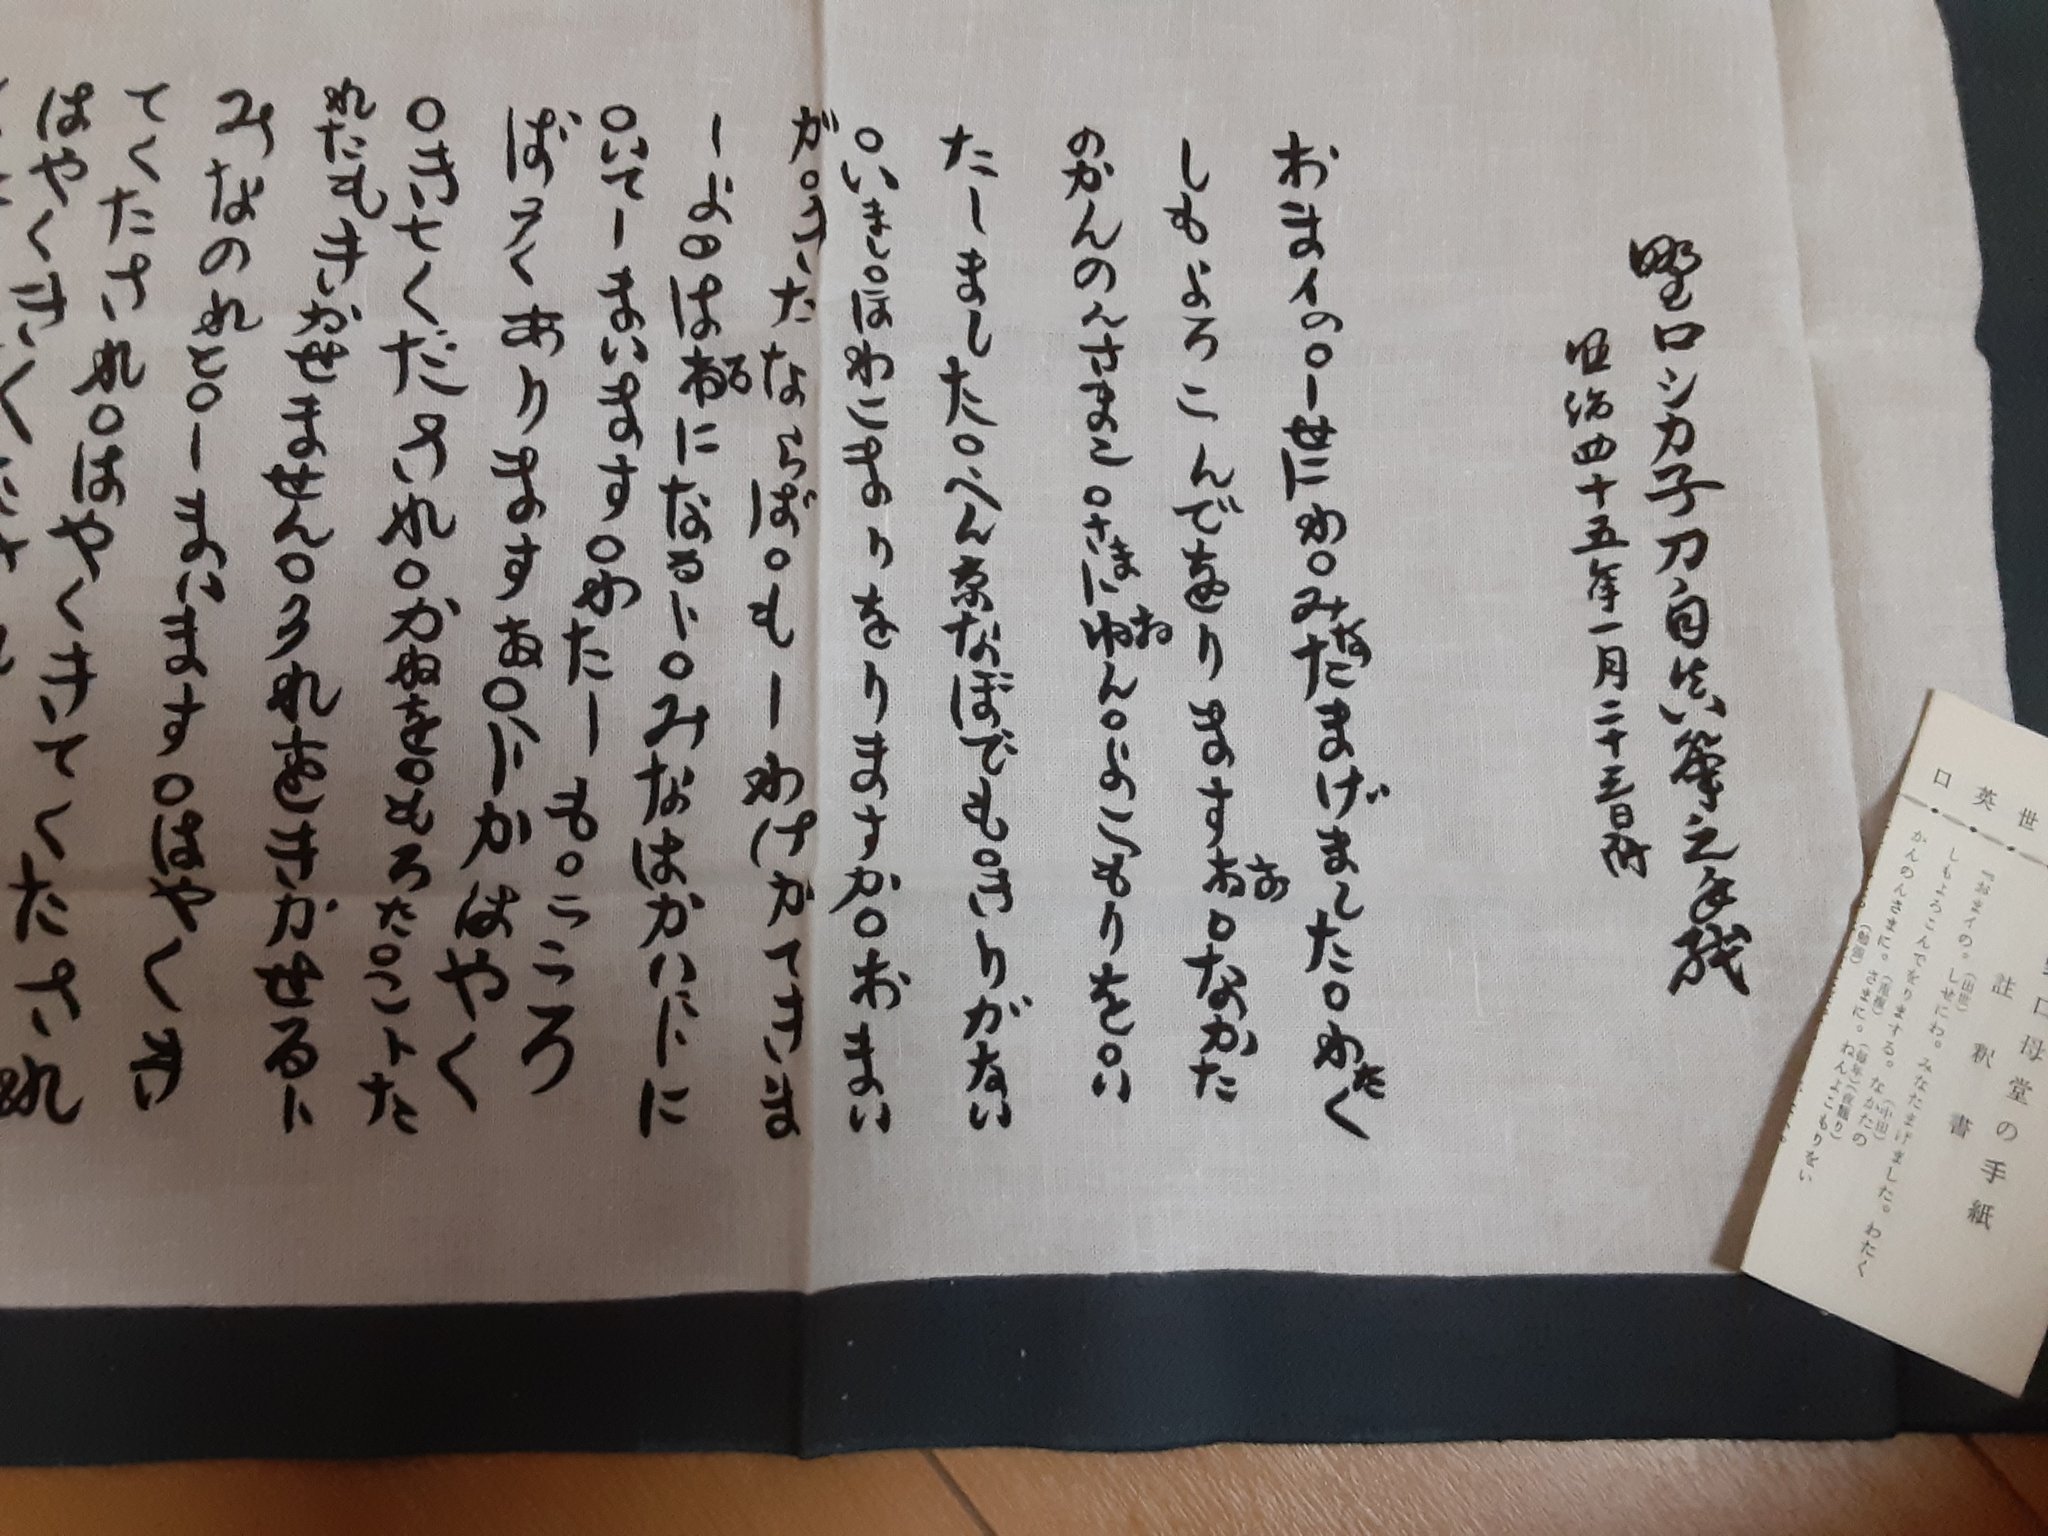 野口シカ子刀自真筆之手残
明治四十五年一月二十三日附
おまイの○ーせにわ○みなたまげました○わたく
しもよろこんでをりますおお○なかた
のかんのんさまに○さまにねん○よこもりをい
たーました○べん京なぼでも○きりがない
○いまし○ほわこまりをりますか○おまい
が○きたならば○もーわけかてきま
ーよ○はるになるト○みなはかいドに
○いてーまいます○わたーも○こころ
ぼそくありますあ○ドかはやく
○きてくだされ○かねを○もろた○コトた
れにもきかせません○それをきかせるト
みなのれて○ーまいます○はやくき
てくたされ○はやくきてくたされ
はやくきてくたされ
口英世
野口母堂の手紙
註釈書
『おまイの。しせにわ。みなたまげました。わたく
(出世)
しもよろこんでをりまする。なかたの
(中田)
かんのんさまに。さまに。ねんよこもりをい
(観音)
(毎年)(夜籠り)